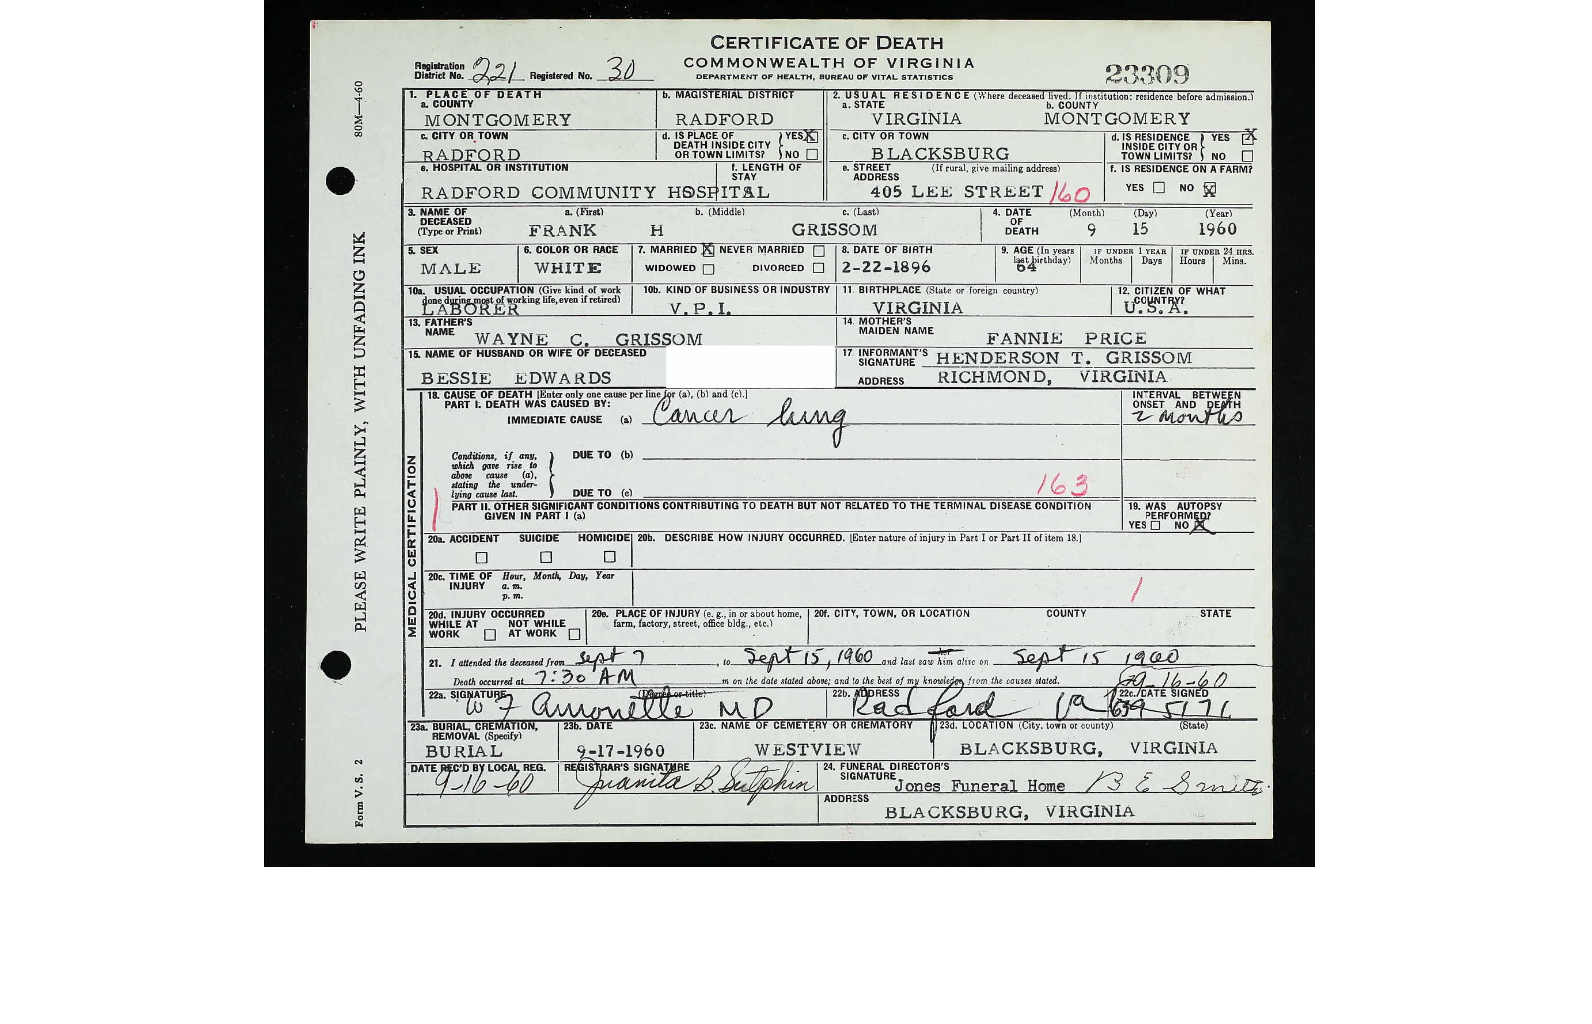 CERTIFICATE OF DEATH
COMMONWEALTH OF VIRGINIA
DEPARTMENT OF HEALTH, BUREAU OF VITAL STATISTICS
Registration District No. 221 Registered No. 30
23309
1. PLACE OF DEATH
a. COUNTY
MONTGOMERY
b. MAGISTERIAL DISTRICT
RADFORD
2. USUAL RESIDENCE (Where deceased lived. If institution: residence before admission.)
a. STATE
VIRGINIA
b. COUNTY
MONTGOMERY
c. CITY OR TOWN
RADFORD
d. IS PLACE OF DEATH INSIDE CITY OR TOWN LIMITS? YES X NO
c. CITY OR TOWN
BLACKSBURG
d. IS RESIDENCE INSIDE CITY OR TOWN LIMITS? YES X NO
e. HOSPITAL OR INSTITUTION
RADFORD COMMUNITY HOSPITAL
f. LENGTH OF STAY
e. STREET ADDRESS (If rural, give mailing address)
405 LEE STREET 160
f. IS RESIDENCE ON A FARM?
YES NO X
3. NAME OF DECEASED (Type or Print)
a. (First) b. (Middle) c. (Last)
FRANK H GRISSOM
4. DATE OF DEATH (Month) (Day) (Year)
9 15 1960
5. SEX
MALE
6. COLOR OR RACE
WHITE
7. MARRIED X NEVER MARRIED
WIDOWED DIVORCED
8. DATE OF BIRTH
2-22-1896
9. AGE (In years last birthday)
64
IF UNDER 1 YEAR Months Days
IF UNDER 24 HRS. Hours Mins.
10a. USUAL OCCUPATION (Give kind of work done during most of working life, even if retired)
LABORER
10b. KIND OF BUSINESS OR INDUSTRY
V.P.I.
11. BIRTHPLACE (State or foreign country)
VIRGINIA
12. CITIZEN OF WHAT COUNTRY?
U.S.A.
13. FATHER'S NAME
WAYNE C. GRISSOM
14. MOTHER'S MAIDEN NAME
FANNIE PRICE
15. NAME OF HUSBAND OR WIFE OF DECEASED
BESSIE EDWARDS
17. INFORMANT'S SIGNATURE HENDERSON T. GRISSOM
ADDRESS RICHMOND, VIRGINIA
18. CAUSE OF DEATH [Enter only one cause per line for (a), (b) and (c).]
PART I. DEATH WAS CAUSED BY:
IMMEDIATE CAUSE (a) Cancer lung
INTERVAL BETWEEN ONSET AND DEATH
2 Months
Conditions, if any, which gave rise to above cause (a), stating the underlying cause last.
DUE TO (b)
DUE TO (c)
163
PART II. OTHER SIGNIFICANT CONDITIONS CONTRIBUTING TO DEATH BUT NOT RELATED TO THE TERMINAL DISEASE CONDITION GIVEN IN PART I (a)
19. WAS AUTOPSY PERFORMED?
YES NO X
20a. ACCIDENT SUICIDE HOMICIDE
20b. DESCRIBE HOW INJURY OCCURRED. [Enter nature of injury in Part I or Part II of item 18.]
20c. TIME OF INJURY Hour, Month, Day, Year
a. m.
p. m.
20d. INJURY OCCURRED
WHILE AT WORK NOT WHILE AT WORK
20e. PLACE OF INJURY (e. g., in or about home, farm, factory, street, office bldg., etc.)
20f. CITY, TOWN, OR LOCATION COUNTY STATE
21. I attended the deceased from Sept 7, to Sept 15, 1960 and last saw him alive on Sept 15 1960
Death occurred at 7:30 AM m on the date stated above; and to the best of my knowledge, from the causes stated.
22a. SIGNATURE (Degree or title)
W F Amonette MD
22b. ADDRESS
Radford Va
22c. DATE SIGNED
9-16-60
639 5171
23a. BURIAL, CREMATION, REMOVAL (Specify)
BURIAL
23b. DATE
9-17-1960
23c. NAME OF CEMETERY OR CREMATORY
WESTVIEW
23d. LOCATION (City, town or county) (State)
BLACKSBURG, VIRGINIA
DATE REC'D BY LOCAL REG.
9-16-60
REGISTRAR'S SIGNATURE
Juanita B. Sutphin
24. FUNERAL DIRECTOR'S SIGNATURE
Jones Funeral Home B E Smith
ADDRESS
BLACKSBURG, VIRGINIA
MEDICAL CERTIFICATION
PLEASE WRITE PLAINLY, WITH UNFADING INK
80M—4-60
Form V. S. 2